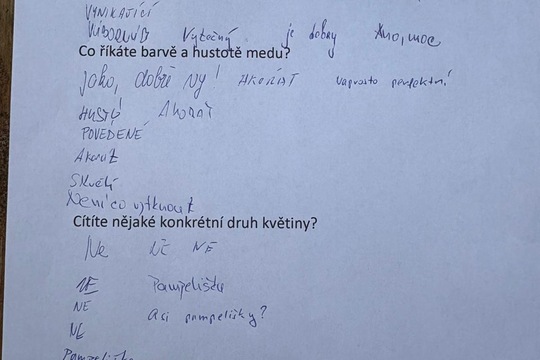 VYNIKAJÍCÍ
VÝBORNÝ Výtečný je dobrý Ano, moc
Co říkáte barvě a hustotě medu?
jako, dobře vy! AKORÁT naprosto perfektní!
HUSTÝ AKORÁT
POVEDENÉ
AKORÁT
Skvělý
Není co vytknout
Cítíte nějaké konkrétní druh květiny?
Ne NE NE
NE Pampelišku
NE Asi pampelišky?
NE